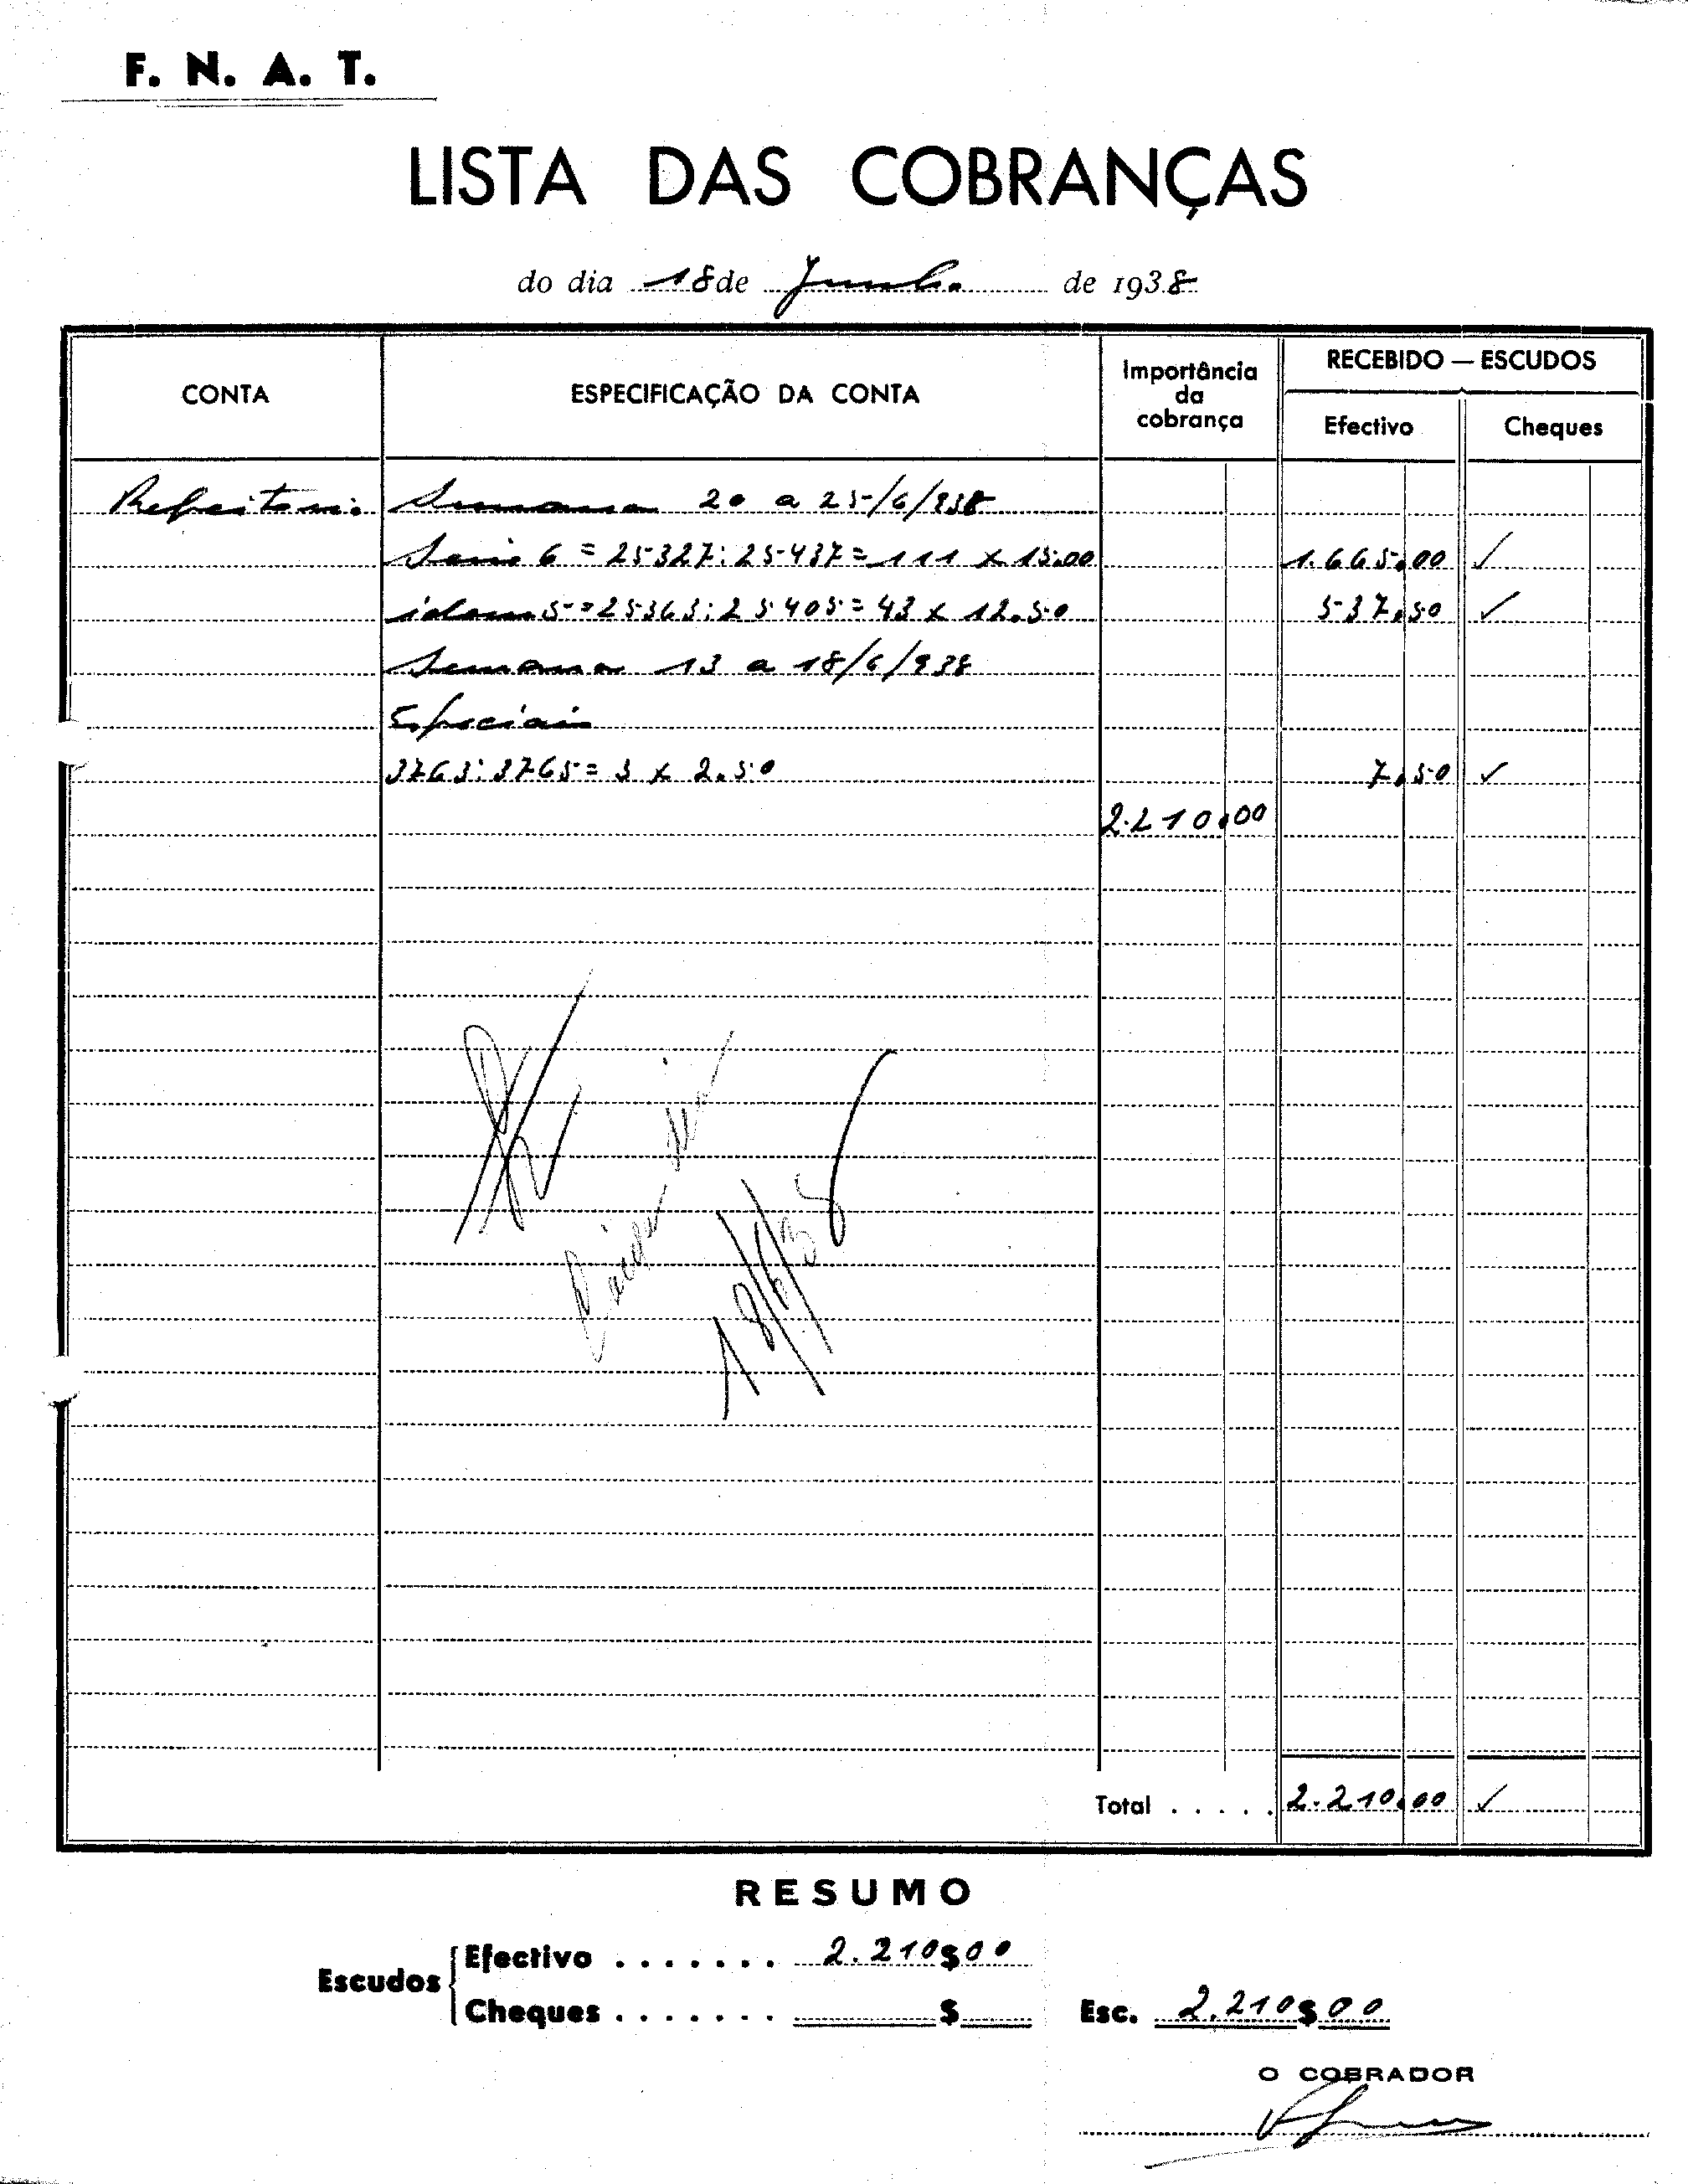 F. N. A. T.
LISTA DAS COBRANÇAS
do dia 18 de Junho de 1938
CONTA ESPECIFICAÇÃO DA CONTA Importância da cobrança RECEBIDO — ESCUDOS
Efectivo Cheques
Refeitorio Semana 20 a 25/6/938
Serie 6 = 25327:25437 = 111 x 15.00 1.665,00 ✓
idem 5 = 25363:25405 = 43 x 12.50 537,50 ✓
Semana 13 a 18/6/938
Especiais
3763:3765 = 3 x 2.50 7,50 ✓
2.210,00
18/6/38
Total . . . . . 2.210,00 ✓
RESUMO
Escudos
Efectivo . . . . . . . 2.210$00
Cheques . . . . . . . $ Esc. 2.210$00
O COBRADOR